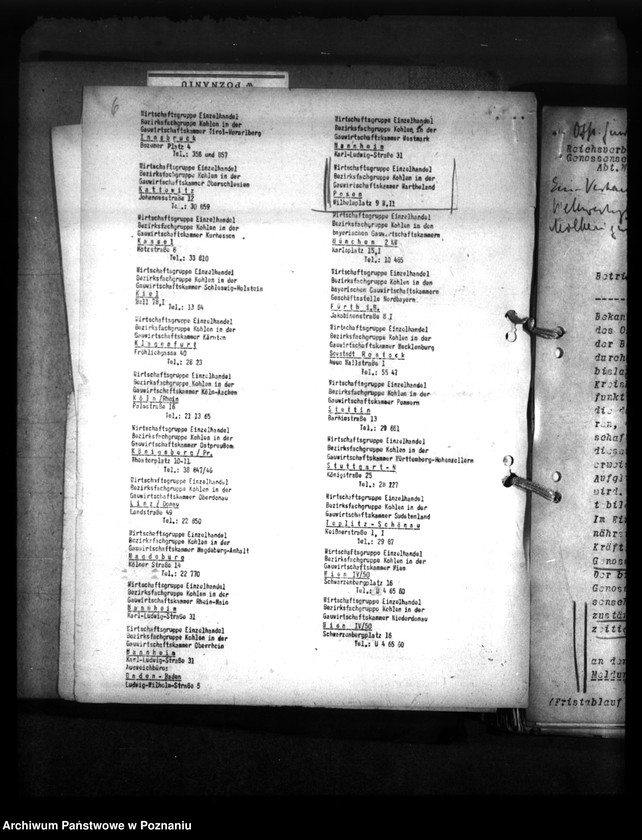 W POZNANIU
6
Wirtschaftsgruppe Einzelhandel
Bezirksfachgruppe Kohlen in der
Gauwirtschaftskammer Tirol-Vorarlberg
Innsbruck
Bozener Platz 4
Tel.: 356 und 057
Wirtschaftsgruppe Einzelhandel
Bezirksfachgruppe Kohlen in der
Gauwirtschaftskammer Oberschlesien
Kattowitz
Johannesstraße 12
Tel.: 30 659
Wirtschaftsgruppe Einzelhandel
Bezirksfachgruppe Kohlen in der
Gauwirtschaftskammer Kurhessen
Kassel
Motzstraße 6
Tel.: 33 810
Wirtschaftsgruppe Einzelhandel
Bezirksfachgruppe Kohlen in der
Gauwirtschaftskammer Schleswig-Holstein
Kiel
Wall 28,I
Tel.: 13 84
Wirtschaftsgruppe Einzelhandel
Bezirksfachgruppe Kohlen in der
Gauwirtschaftskammer Kärnten
Klagenfurt
Fröhlichgasse 40
Tel.: 26 23
Wirtschaftsgruppe Einzelhandel
Bezirksfachgruppe Kohlen in der
Gauwirtschaftskammer Köln-Aachen
Köln/Rhein
16
Tel.: 21 13 65
Wirtschaftsgruppe Einzelhandel
Bezirksfachgruppe Kohlen in der
Gauwirtschaftskammer Ostpreußen
Königsberg/Pr.
Theaterplatz 10-11
Tel.: 38 847/46
Wirtschaftsgruppe Einzelhandel
Bezirksfachgruppe Kohlen in der
Gauwirtschaftskammer Oberdonau
Linz/Donau
Landstraße 49
Tel.: 22 850
Wirtschaftsgruppe Einzelhandel
Bezirksfachgruppe Kohlen in der
Gauwirtschaftskammer Magdeburg-Anhalt
Magdeburg
Kölner Straße 14
Tel.: 22 770
Wirtschaftsgruppe Einzelhandel
Bezirksfachgruppe Kohlen in der
Gauwirtschaftskammer Rhein-Main
Mannheim
Karl-Ludwig-Straße 31
Wirtschaftsgruppe Einzelhandel
Bezirksfachgruppe Kohlen in der
Gauwirtschaftskammer Oberrhein
Mannheim
Karl-Ludwig-Straße 31
Ausweichbüro:
Baden-Baden
Ludwig-Wilhelm-Straße 5
Wirtschaftsgruppe Einzelhandel
Bezirksfachgruppe Kohlen in der
Gauwirtschaftskammer Westmark
Mannheim
Karl-Ludwig-Straße 31
Wirtschaftsgruppe Einzelhandel
Bezirksfachgruppe Kohlen in der
Gauwirtschaftskammer Wartheland
Posen
Wilhelmplatz 9 II
Wirtschaftsgruppe Einzelhandel
Bezirksfachgruppe Kohlen in den
bayerischen Gauwirtschaftskammern
München 2 NW
Karlsplatz 15,I
Tel.: 10 465
Wirtschaftsgruppe Einzelhandel
Bezirksfachgruppe Kohlen in den
bayerischen Gauwirtschaftskammern
Geschäftsstelle Nordbayern
Fürth i.B.
Jakobinenstraße 8 I
Wirtschaftsgruppe Einzelhandel
Bezirksfachgruppe Kohlen in der
Gauwirtschaftskammer Mecklenburg
Seestadt Rostock
Neue Wallstraße 1
Tel.: 55 47
Wirtschaftsgruppe Einzelhandel
Bezirksfachgruppe Kohlen in der
Gauwirtschaftskammer Pommern
Stettin
Barnimstraße 13
Tel.: 29 661
Wirtschaftsgruppe Einzelhandel
Bezirksfachgruppe Kohlen in der
Gauwirtschaftskammer Württemberg-Hohenzollern
Stuttgart-N
Königstraße 25
Tel.: 28 227
Wirtschaftsgruppe Einzelhandel
Bezirksfachgruppe Kohlen in der
Gauwirtschaftskammer Sudetenland
Teplitz-Schönau
Meißnerstraße 1, I
Tel.: 29 67
Wirtschaftsgruppe Einzelhandel
Bezirksfachgruppe Kohlen in der
Gauwirtschaftskammer Wien
Wien IV/50
Schwarzenbergplatz 16
Tel.: U 4 65 60
Wirtschaftsgruppe Einzelhandel
Bezirksfachgruppe Kohlen in der
Gauwirtschaftskammer Niederdonau
Wien IV/50
Schwarzenbergplatz 16
Tel.: U 4 65 60
Reichsverb
Genossensc
Abt.
Betri
Bekan
das O
der B
durch
biele
Kreis
funkt
die d
ren,
schaf
diese
Aufgl
wird.
t bil
Im Ei
nähr
Kräft
Genos
Der B
Genos
sensch
zustän
zeitte
an der
Meldun
(Fristablauf
Archiwum Państwowe w Poznaniu